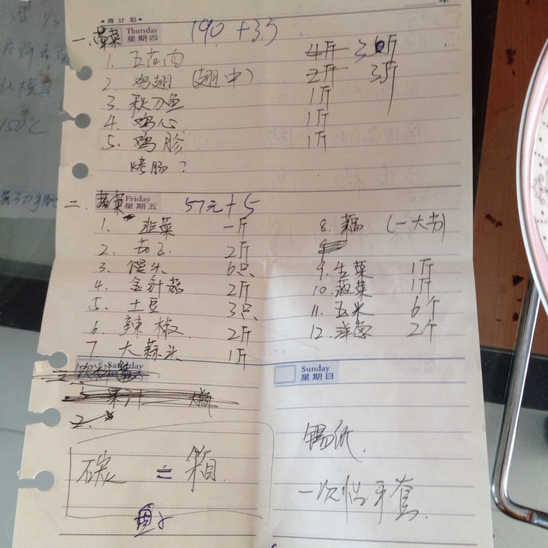 周计划
Thursday
星期四
一、荤菜 190+35
1. 五花肉 4斤
2 鸡翅 (翅中) 2斤 3斤
3 秋刀鱼 1斤
4. 鸡心 1斤
5. 鸡胗 1斤
烤肠？
150℃
Friday
星期五
二. 蔬菜 57元+5
1. 韭菜 一斤
2. 2斤
3. 馒头 6只
4. 金针菇 2斤
5. 土豆 3只
6. 辣椒 2斤
7 大蒜头 1斤
8. 藕 (一大节)
9. 生菜 1斤
10. 蔬菜 1斤
11. 玉米 6个
12. 洋葱 2个
Saturday
Sunday
星期日
2.
碳 箱
锡纸
一次性手套